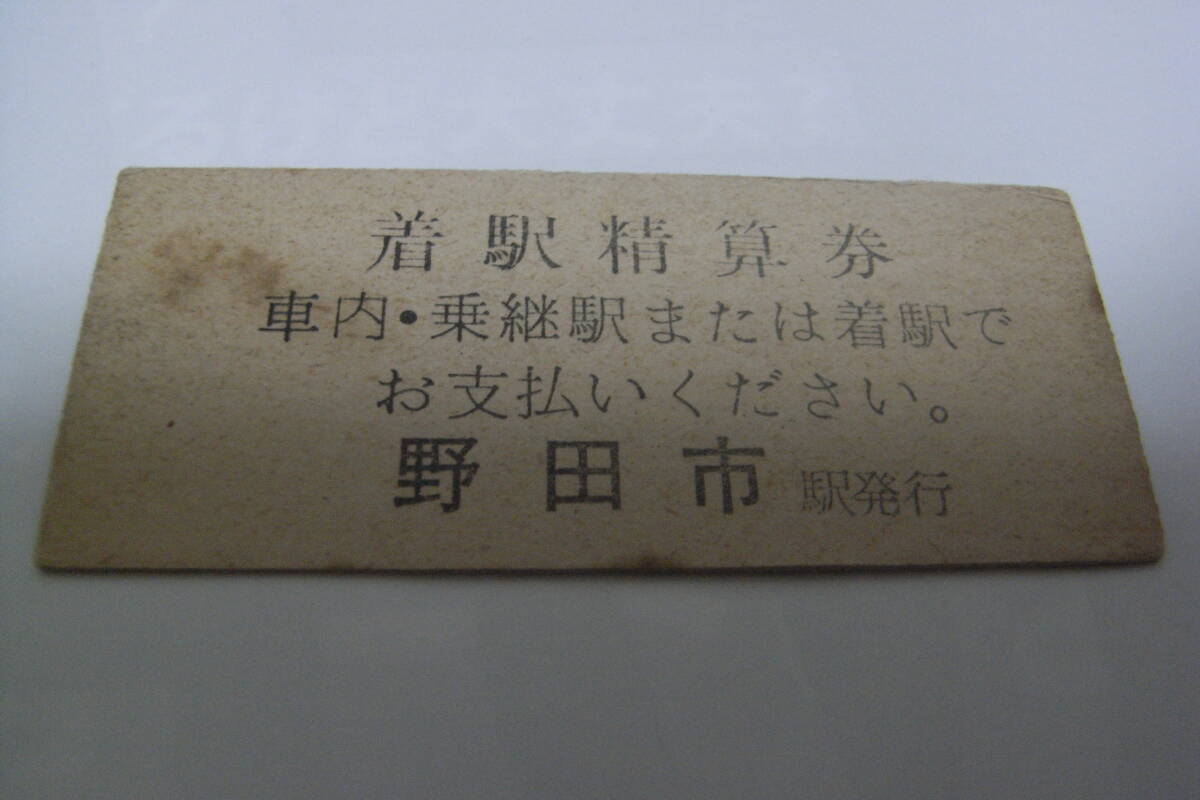 着駅精算券
車内・乗継駅または着駅で
お支払いください。
野田市 駅発行